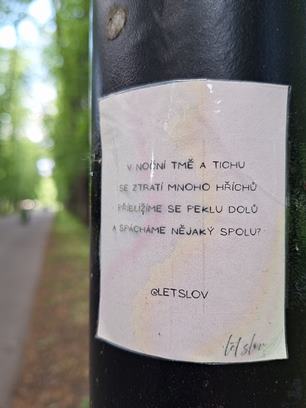 V NOČNÍ TMĚ A TICHU
SE ZTRATÍ MNOHO HŘÍCHŮ
PŘIBLÍŽÍME SE PEKLU DOLŮ
A SPÁCHÁME NĚJAKÝ SPOLU?
@LETSLOV
let slov